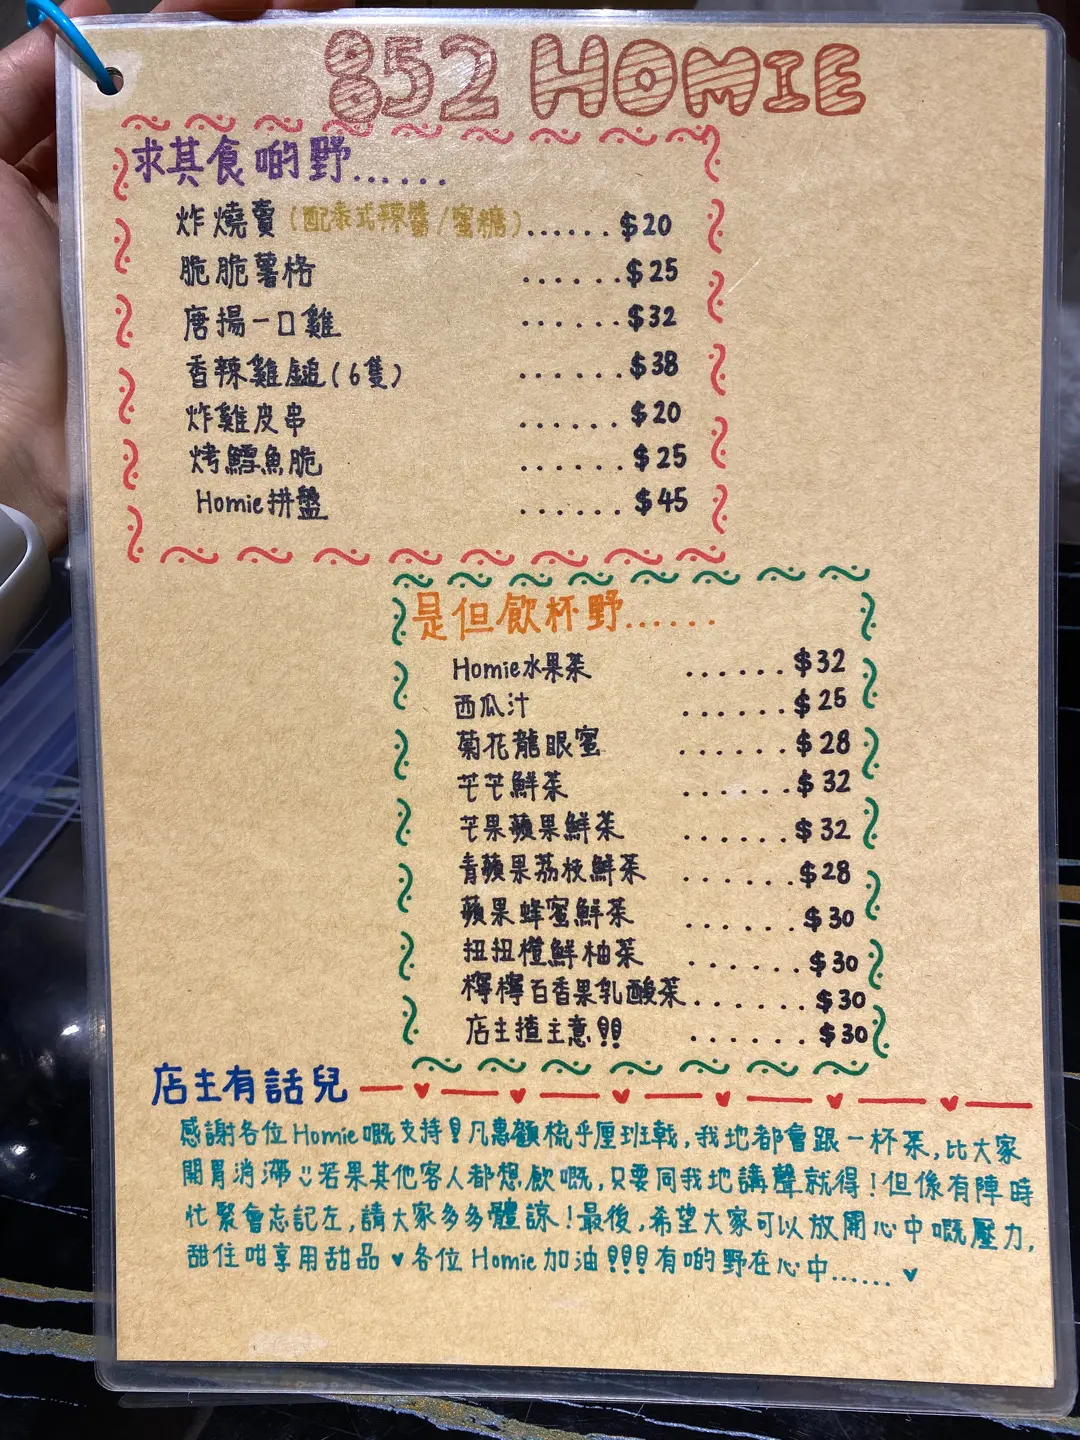 852 HOMIE
求其食啲野......
炸燒賣(配泰式辣醬/蜜糖)......$20
脆脆薯格......$25
唐揚一口雞......$32
香辣雞鎚(6隻)......$38
炸雞皮串......$20
烤鱈魚脆......$25
Homie拼盤......$45
是但飲杯野......
Homie水果茶......$32
西瓜汁......$25
菊花龍眼蜜......$28
芒芒鮮茶......$32
芒果蘋果鮮茶......$32
青蘋果荔枝鮮茶......$28
蘋果蜂蜜鮮茶......$30
扭扭橙鮮柚茶......$30
檸檸百香果乳酸茶......$30
店主揸主意!!......$30
店主有話兒
感謝各位Homie嘅支持!凡惠顧梳乎厘班戟,我地都會跟一杯茶,比大家
開胃消滯 若果其他客人都想飲嘅,只要同我地講聲就得!但係有陣時
忙緊會忘記左,請大家多多體諒!最後,希望大家可以放開心中嘅壓力,
甜住咁享用甜品♥各位Homie加油!!!有啲野在心中......♥